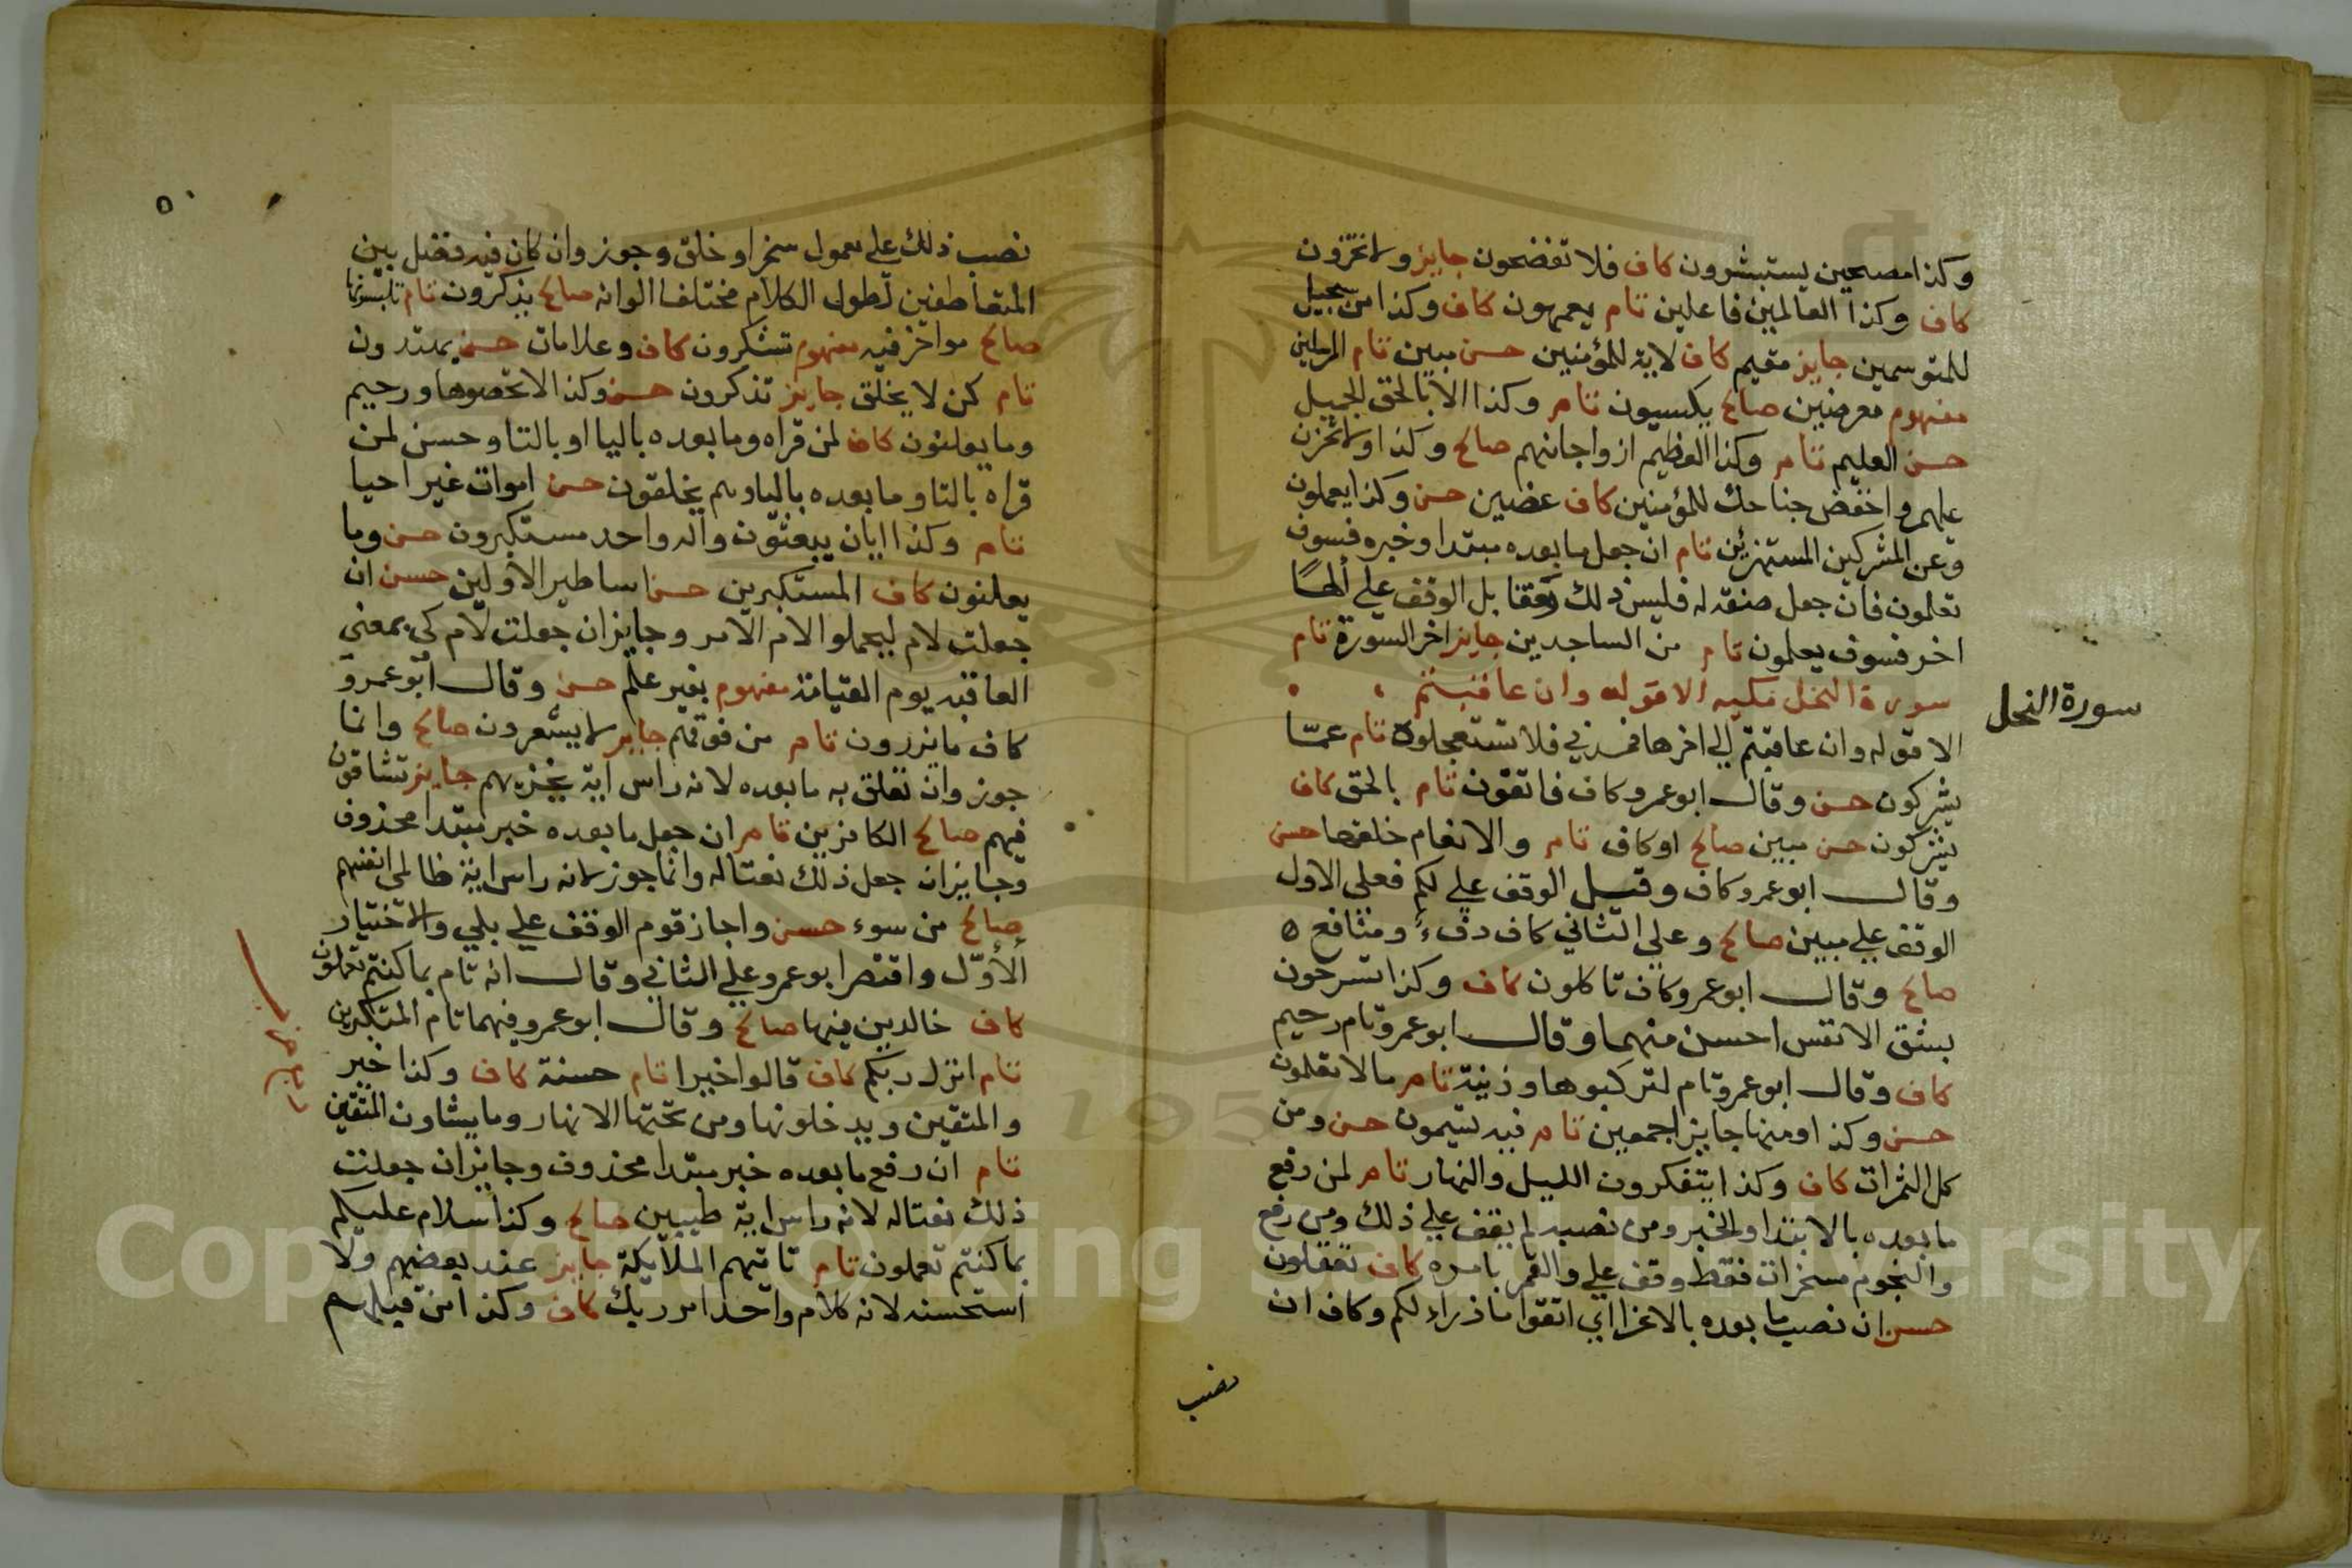 وكذا مصبحين يستبشرون كاف فلا تفضحون جايز ولا تخزون
كاف وكذا العالمين فاعلين تام يعمهون كاف وكذا من سجيل
للمتوسمين جايز مقيم كاف لاية للمؤمنين حسن مبين تام المرسلين
مفهوم معرضين صالح يكسبون تام وكذا الا بالحق الجميل
حسن العليم تام وكذا العظيم ازواجا منهم صالح وكذا ولا تحزن
عليهم واخفض جناحك للمؤمنين كاف عضين حسن وكذا يعملون
وعن المشركين المستهزئين تام ان جعل ما بعده مبتدا وخبره فسوف
تعلمون فان جعل صفة له فليس ذلك وقفا بل الوقف علي الهًا
اخر فسوف يعلمون تام من الساجدين جايز اخر السورة تام
سورة النحل
سورة النحل مكيه الا قوله وان عاقبتم
الا قوله وان عاقبتم الي اخرها فمدني فلا تستعجلوه تام عمّا
يشركون حسن وقال ابو عمرو كاف فاتقون تام بالحق كاف
يشركون حسن مبين صالح او كاف تام والانعام خلقها حسن
وقال ابو عمرو كاف وقيل الوقف علي لكم فعلي الاول
الوقف علي مبين صالح وعلي الثاني كاف دفءٌ ومنافع ه
صالح وقال ابو عمرو كاف تاكلون كاف وكذا تسرحون
بشق الانفس احسن منهما وقال ابو عمرو تام رحيم
كاف وقال ابو عمرو تام لتركبوها وزينة تام مالا تعلمون
حسن وكذا ومنها جايز اجمعين تام فيه تسيمون حسن ومن
كل الثمرات كاف وكذا يتفكرون الليل والنهار تام لمن رفع
ما بعده بالابتدا والخبر ومن نصبه لم يقف علي ذلك ومن رفع
والنجوم مسخرات فقط وقف علي والقمر بامره كاف تعقلون
حسن ان نصب ما بعده بالاغرا اي اتقوا ما ذرا لكم وكاف ان
نصب
٥٠
نصب ذلك علي معمول سخر او خلق وجوز وان كان فيه فصل بين
المتعاطفين لطول الكلام مختلفا الوانه صالح يذكرون تام تلبسونها
صالح مواخر فيه مفهوم تشكرون كاف وعلامات حسن يهتدون
تام كمن لا يخلق جايز تذكرون حسن وكذا لا تحصوها ورحيم
وما يعلنون كاف لمن قراه وما بعده باليا او بالتا وحسن لمن
قراه بالتا وما بعده باليا وهم يخلقون حسن اموات غير احيا
تام وكذا ايان يبعثون واله واحد مستكبرون حسن وما
يعلنون كاف المستكبرين حسن اساطير الاولين حسن ان
جعلت لام ليحملوا لام الامر وجايز ان جعلت لام كي بمعني
العاقبه يوم القيامة مفهوم بغير علم حسن وقال ابو عمرو
كاف ما يزرون تام من فوقهم جايز لا يشعرون صالح وانما
جوز وان تعلق به ما بعده لانه راس اية يخزيهم جايز تشاقون
فيهم صالح الكافرين تام ان جعل ما بعده خبر مبتدا محذوف
وجايز ان جعل ذلك نعتا له وانما جوز لانه راس اية ظالمي انفسهم
صالح من سوء حسن واجاز قوم الوقف علي بلي والاختيار
الأوّل واقتصر ابو عمرو علي الثاني وقال انه تام بما كنتم تعملون
كاف خالدين فيها صالح وقال ابو عمرو فيهما تام المتكبرين
تام انزل ربكم كاف قالوا خيرا تام حسنة كاف وكذا خير
والمتقين ويدخلونها ومن تحتها الانهار وما يشاون المتقين
تام ان رفع ما بعده خبر مبتدا محذوف وجايز ان جعلت
ذلك نعتا له لانه راس اية طيبين صالح وكذا سلام عليكم
بما كنتم تعملون تام تاتيهم الملايكة جايز عند بعضهم ولا
استحسنه لانه كلام واحد امر ربك كاف وكذا من قبلهم
Copyright © King Saud University
1957